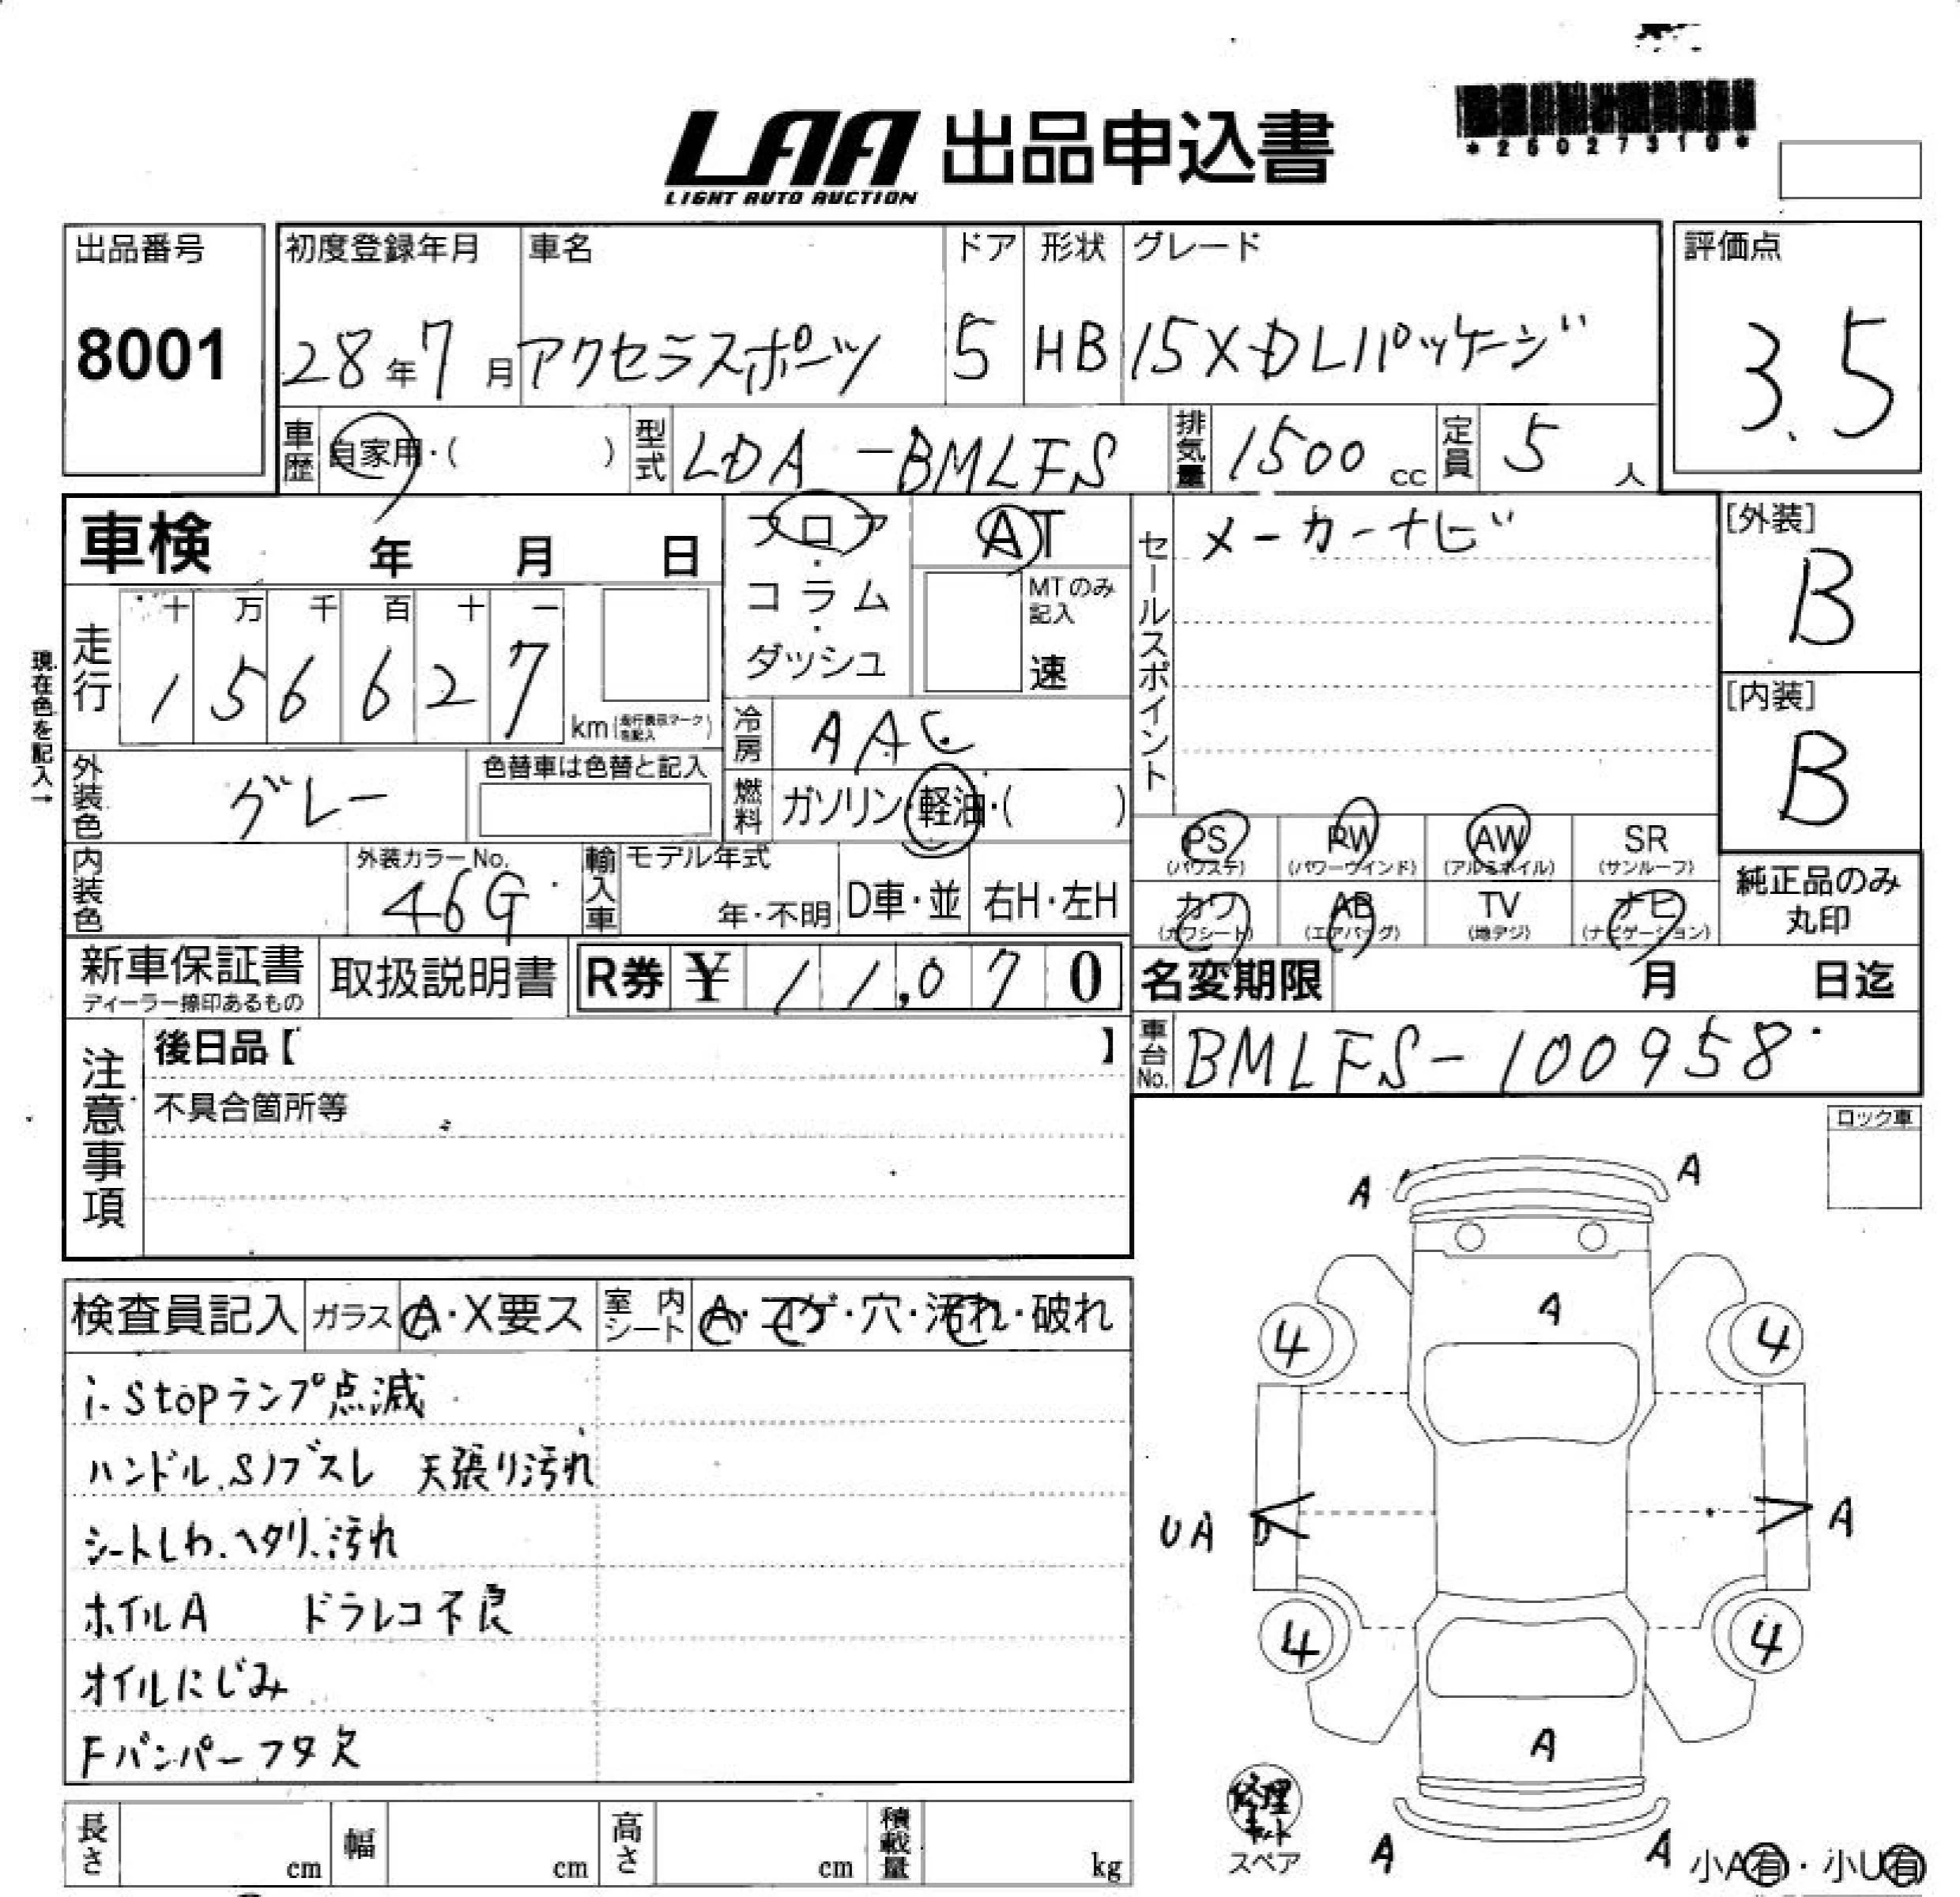 LAA 出品申込書
LIGHT AUTO AUCTION
*25027310*
出品番号
8001
初度登録年月
28年7月
車名
アクセラスポーツ
ドア
5
形状
HB
グレード
15XDLパッケージ
評価点
3.5
車歴
自家用・( )
型式
LDA-BMLFS
排気量
1500cc
定員
5人
車検 年 月 日
フロア・コラム・ダッシュ
AT
MTのみ記入
速
セールスポイント
メーカーナビ
[外装]
B
[内装]
B
現在色を記入→
走行
十 万 千 百 十 一
1 5 6 6 2 7
km(走行表示マークを記入)
冷房
AAC
外装色
グレー
色替車は色替と記入
燃料
ガソリン・軽油・( )
PS
(パワステ)
PW
(パワーウインド)
AW
(アルミホイル)
SR
(サンルーフ)
カワ
(カワシート)
AB
(エアバッグ)
TV
(地デジ)
ナビ
(ナビゲーション)
純正品のみ丸印
内装色
外装カラーNo.
46G
輸入車
モデル年式
年・不明
D車・並
右H・左H
新車保証書
ディーラー捺印あるもの
取扱説明書
R券 ¥ 11,070
名変期限 月 日迄
車台No.
BMLFS-100958
注意事項
後日品【 】
不具合箇所等
ロック車
検査員記入
ガラス A・X要ス
室内シート A・コゲ・穴・汚れ・破れ
i-stopランプ点滅
ハンドル.Sノブスレ 天張り汚れ
シートしわ.ヘタリ.汚れ
ホイルA ドラレコ不良
オイルにじみ
Fバンパーフタ欠
A A
A
4 4
UA A
4 4
A
A A
修理キット
スペア
小A有・小U有
長さ cm
幅 cm
高さ cm
積載量 kg